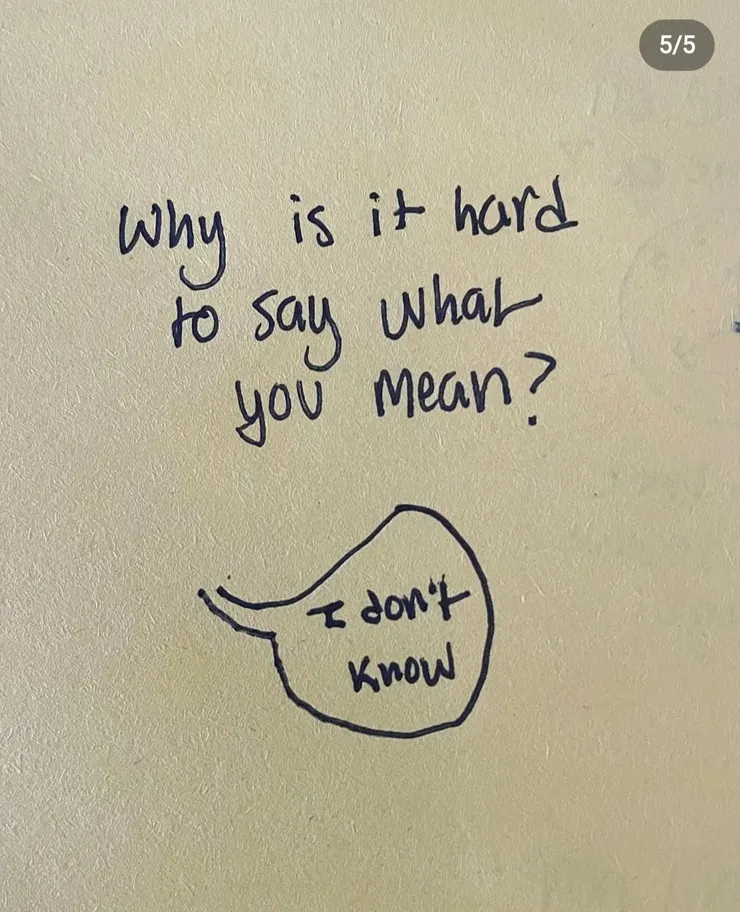 5/5
Why is it hard
to say what
you mean?
I don't
know